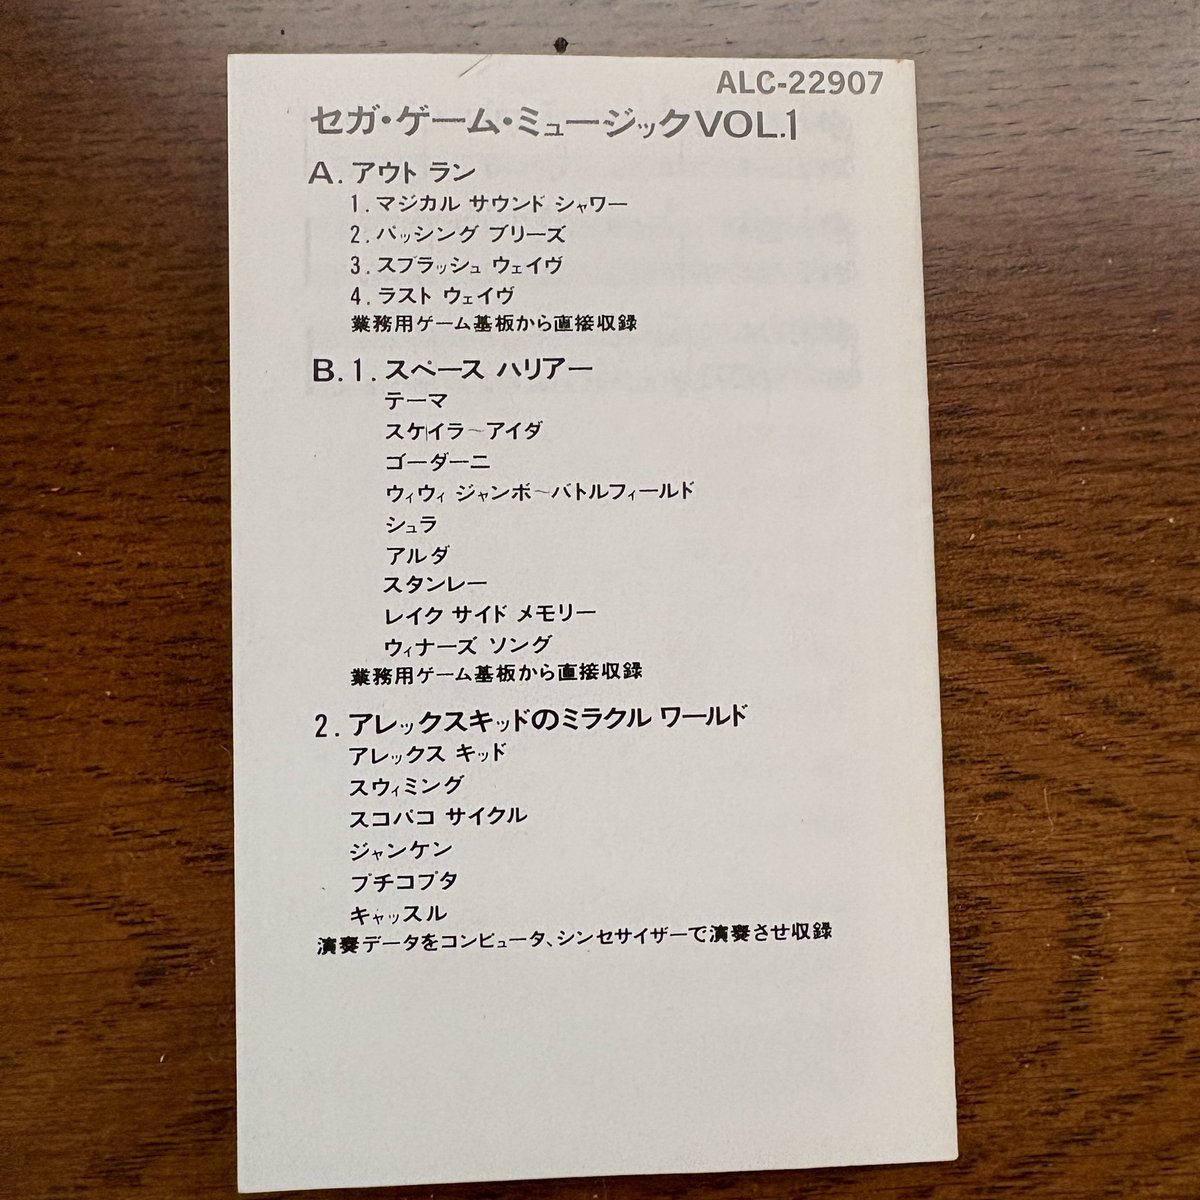 ALC-22907
セガ・ゲーム・ミュージックVOL.1
A. アウト ラン
1. マジカル サウンド シャワー
2. パッシング ブリーズ
3. スプラッシュ ウェイヴ
4. ラスト ウェイヴ
業務用ゲーム基板から直接収録
B. 1. スペース ハリアー
テーマ
スケイラ〜アイダ
ゴーダーニ
ウィウィ ジャンボ〜バトルフィールド
シュラ
アルダ
スタンレー
レイク サイド メモリー
ウィナーズ ソング
業務用ゲーム基板から直接収録
2. アレックスキッドのミラクル ワールド
アレックス キッド
スウィミング
スコパコ サイクル
ジャンケン
プチコプタ
キャッスル
演奏データをコンピュータ、シンセサイザーで演奏させ収録